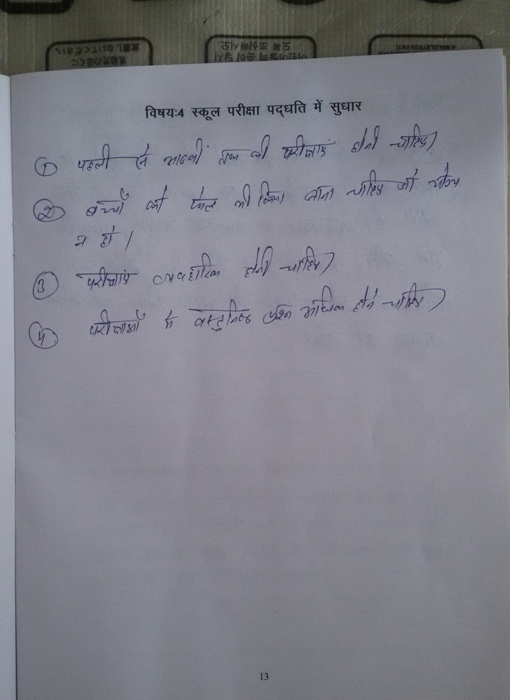 विषय:4 स्कूल परीक्षा पद्धति में सुधार
① पहली से आठवीं तक की परीक्षाएं होनी चाहिए।
② बच्चों को फेल भी किया जाना चाहिए जो योग्य
न हो।
③ परीक्षाएं व्यवहारिक होनी चाहिए।
④ परीक्षाओं में वस्तुनिष्ठ प्रश्न अधिक होने चाहिए।
13